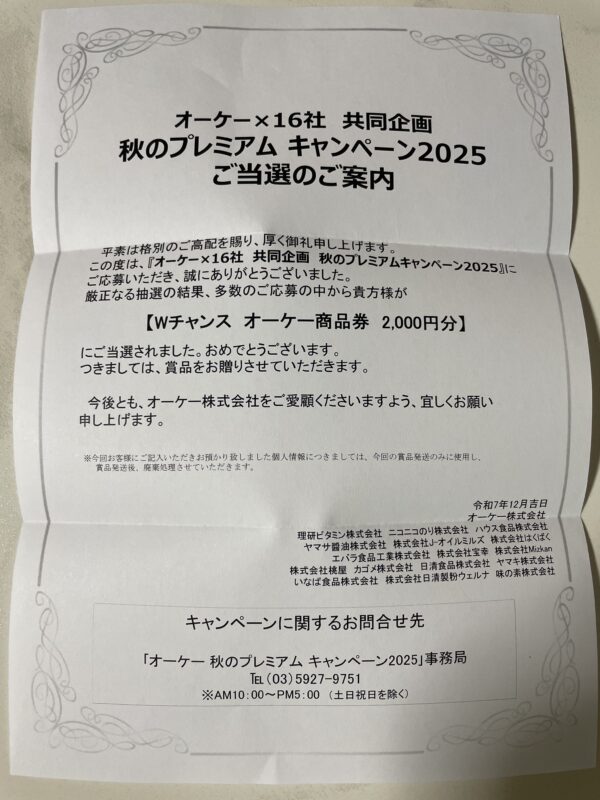 オーケー×16社 共同企画
秋のプレミアム キャンペーン2025
ご当選のご案内
平素は格別のご高配を賜り、厚く御礼申し上げます。
この度は、『オーケー×16社 共同企画 秋のプレミアムキャンペーン2025』に
ご応募いただき、誠にありがとうございました。
厳正なる抽選の結果、多数のご応募の中から貴方様が
【Wチャンス オーケー商品券 2,000円分】
にご当選されました。おめでとうございます。
つきましては、賞品をお贈りさせていただきます。
今後とも、オーケー株式会社をご愛顧くださいますよう、宜しくお願い
申し上げます。
※今回お客様にご記入いただきお預かり致しました個人情報につきましては、今回の賞品発送のみに使用し、
賞品発送後、廃棄処理させていただきます。
令和7年12月吉日
オーケー株式会社
理研ビタミン株式会社 ニコニコのり株式会社 ハウス食品株式会社
ヤマサ醤油株式会社 株式会社J-オイルミルズ 株式会社はくばく
エバラ食品工業株式会社 株式会社宝幸 株式会社Mizkan
株式会社桃屋 カゴメ株式会社 日清食品株式会社 ヤマキ株式会社
いなば食品株式会社 株式会社日清製粉ウェルナ 味の素株式会社
キャンペーンに関するお問合せ先
「オーケー 秋のプレミアム キャンペーン2025」事務局
℡(03)5927-9751
※AM10:00～PM5:00 (土日祝日を除く)